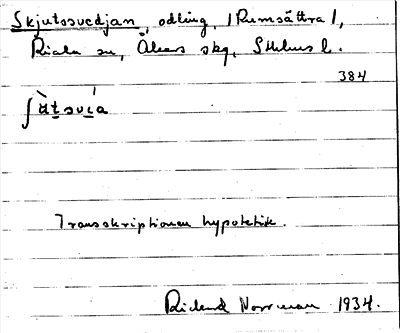 Skjutsvedjan, odling, /Rumsättra/,
Riala sn, Åkers skg, Sthlms l.
384
Transskriptionen hypotetisk.
Rickard Norrman 1934.